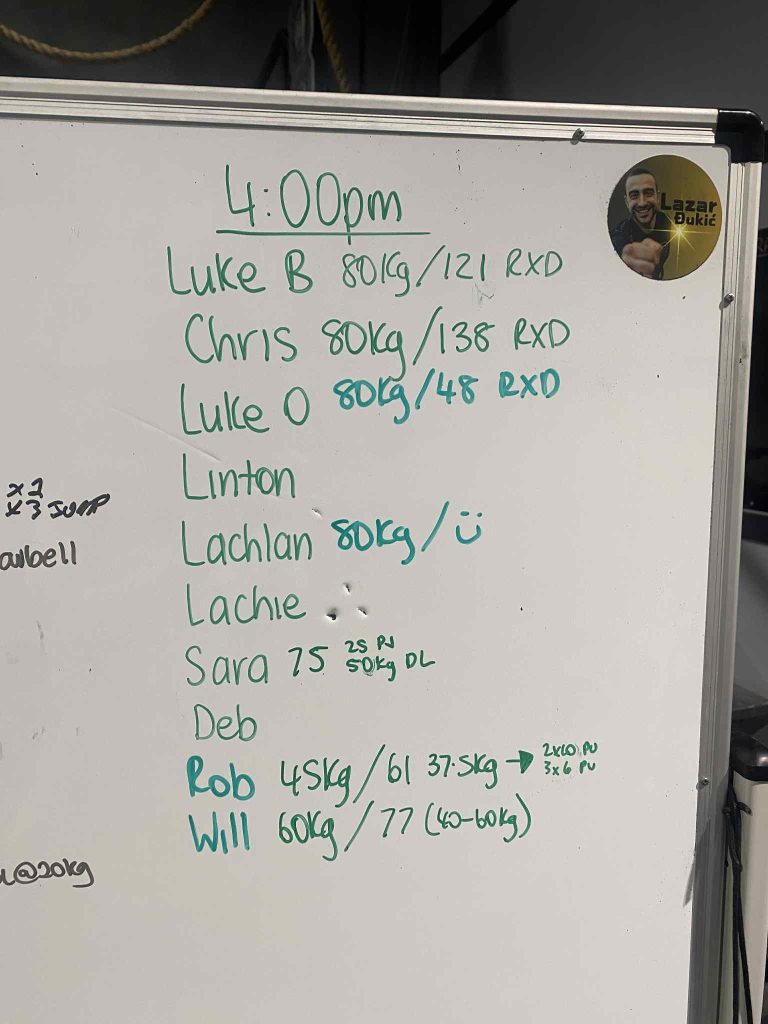 4:00pm
Lazar
Đukić
Luke B 80Kg/121 RXD
Chris 80Kg/138 RXD
Luke O 80Kg/48 RXD
Linton
x 1
x 3 JUMP
Lachlan 80Kg/ü
arbell
Lachie
Sara 75 25 PU
50Kg DL
Deb
Rob 45Kg/61 37.5Kg → 2x10 PU
3x6 PU
Will 60Kg/77 (40-60Kg)
@20Kg